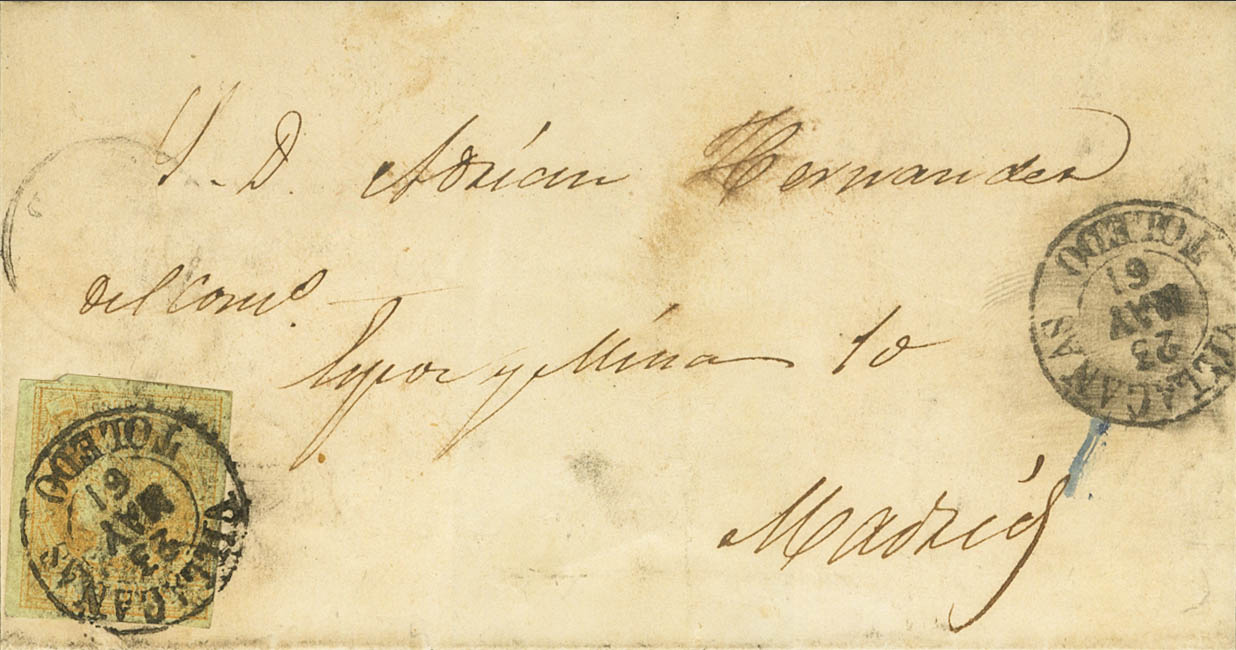 S. D. Adrián Hernandez
del Com.º
Espoz y Mina 10
Madrid
VILLACAÑAS
TOLEDO
23
MAY
61
VILLACAÑAS
TOLEDO
23
MAY
61